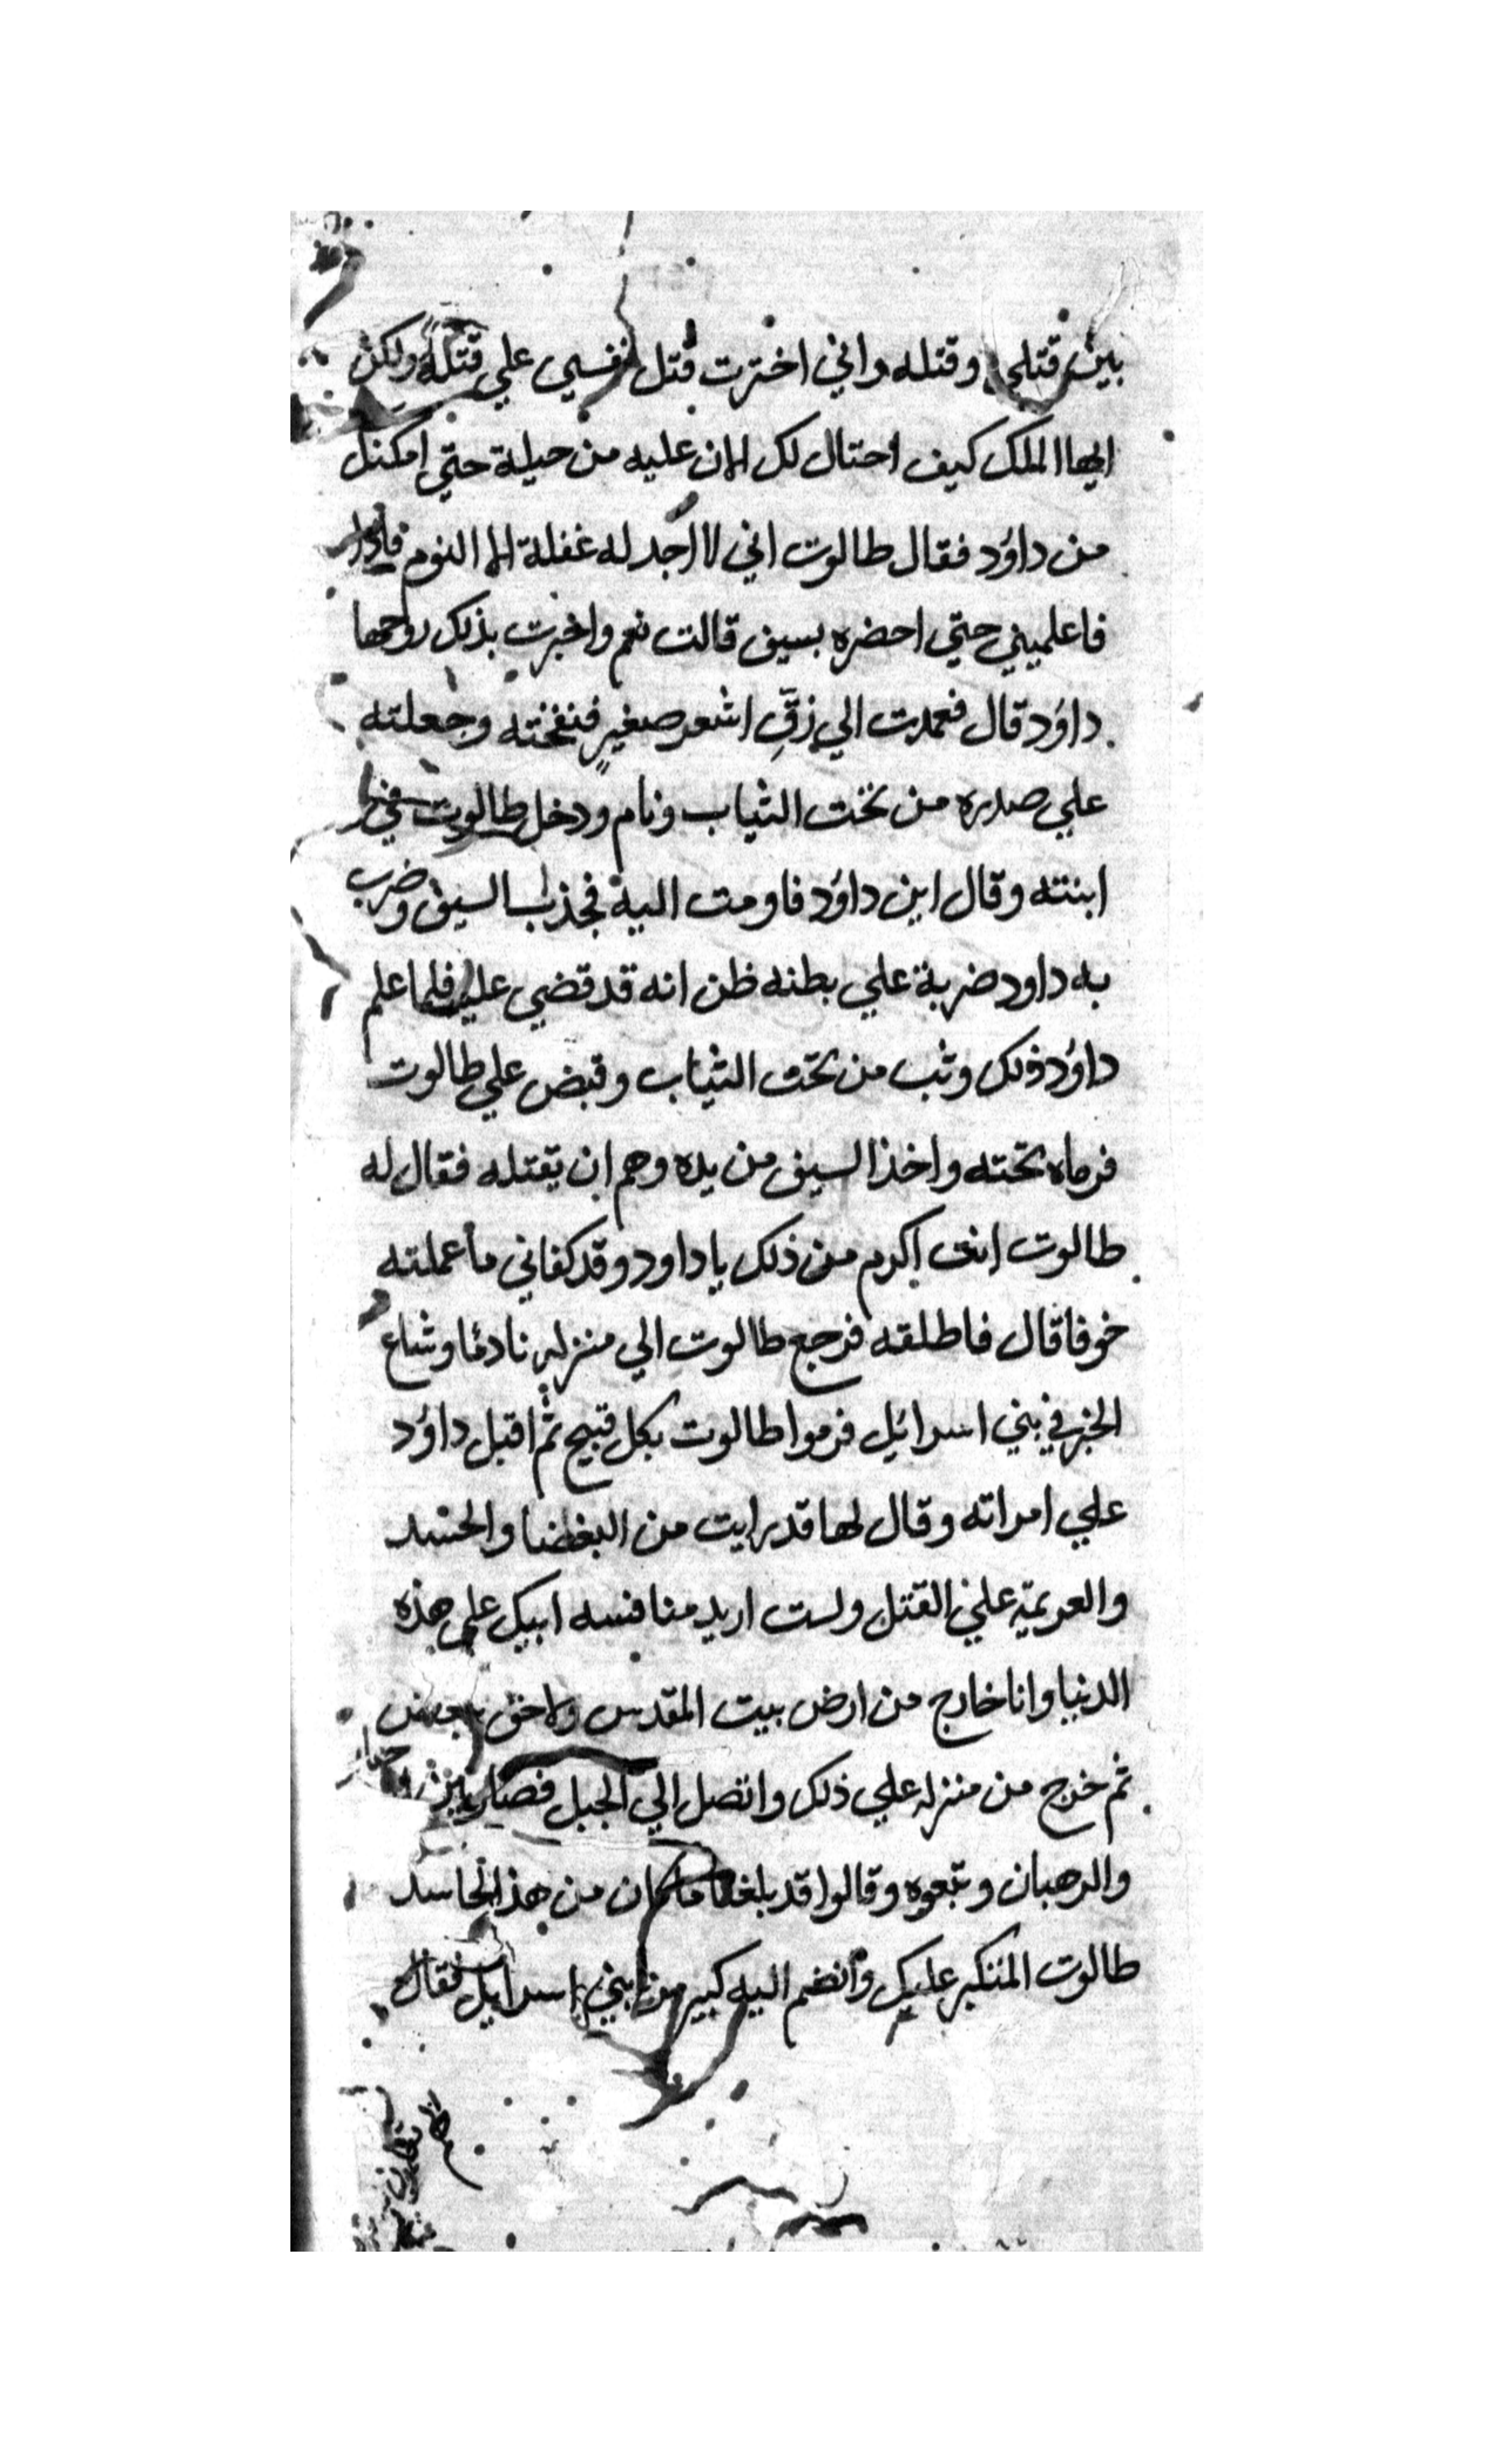 بين قتلي وقتله واني اخترت قتل نفسي علي قتله ولكن
ايها الملك كيف احتال لك الان عليه من حيلة حتي امكنك
من داؤد فقال طالوت اني لا اجد له غفلة الا النوم فاذا
فاعلميني حتي احضره بسيف قالت نعم واخبرت بذلك زوجها
داؤد قال فعمدت الي زقٍّ اشعر صغيرٍ فنفخته وجعلته
علي صدره من تحت الثياب ونام ودخل طالوت
ابنته وقال اين داؤد فاومت اليه فجذب السيف وضرب
به داود ضربة علي بطنه ظن انه قد قضي عليه فلما علم
داؤد ذلك وثب من تحت الثياب وقبض علي طالوت
فرماه تحته واخذ السيف من يده وهم ان يقتله فقال له
طالوت انت اكرم من ذلك يا داود وقد كفاني ما عملته
خوفا قال فاطلقه فرجع طالوت الي منزله نادما وشاع
الخبر في بني اسرائيل فرموا طالوت بكل قبيح ثم اقبل داؤد
علي امراته وقال لها قد رايت من البغضا والحسد
والعزيمة علي القتل ولست اريد منافسه ابيك علي هذه
الدنيا وانا خارج من ارض بيت المقدس ولاحق ببعض
ثم خرج من منزله علي ذلك واتصل الي الجبل فصار بين
والرهبان وتبعوه وقالوا قد بلغنا ما كان من هذا الحاسد
طالوت المتكبر عليك وانضم اليه كبير من بني اسرايل فقال